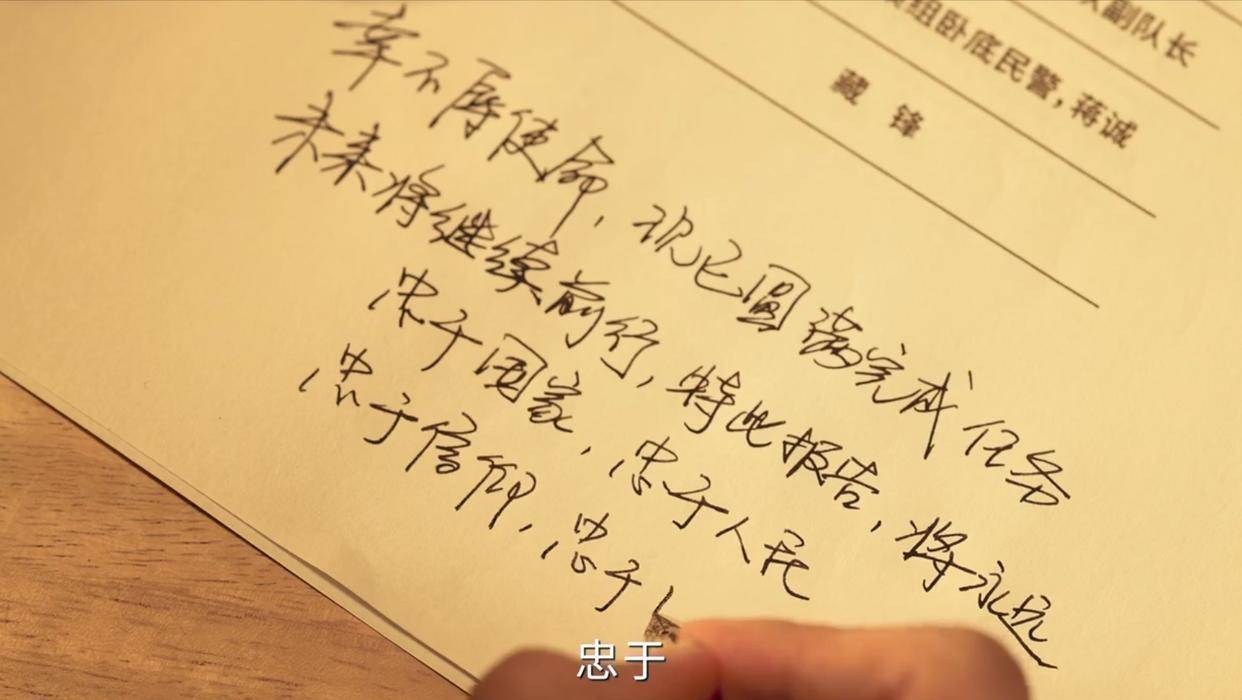 副队长
组卧底民警，蒋诚
藏锋
幸不辱使命，现已圆满完成任务
未来将继续前行，特此报告，将永远
忠于国家，忠于人民
忠于信仰，忠于
忠于